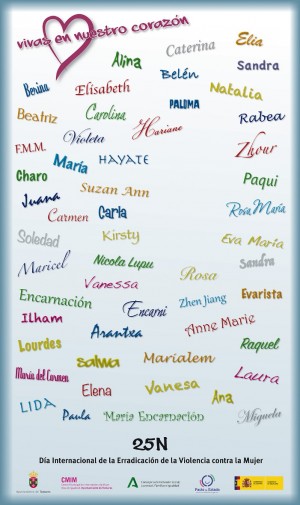 vivas en nuestro corazón
Alina
Caterina
Elia
Sandra
Belén
Benina
Elisabeth
Natalia
Beatriz
Carolina
PALOMA
Rabea
Violeta
Hariane
F.M.M.
Zhour
María
HAYATE
Charo
Suzan Ann
Paqui
Juana
Carmen
Carla
Rosa María
Soledad
Kirsty
Eva María
Maricel
Nicola Lupu
Sandra
Vanessa
Rosa
Encarnación
Encarni
Zhen Jiang
Evarista
Ilham
Arantxa
Anne Marie
Lourdes
Raquel
Salwa
Marialem
María del Carmen
Laura
Elena
Vanesa
LIDA
Ana
Paula
María Encarnación
Miguela
25N
Día Internacional de la Erradicación de la Violencia contra la Mujer
CMIM